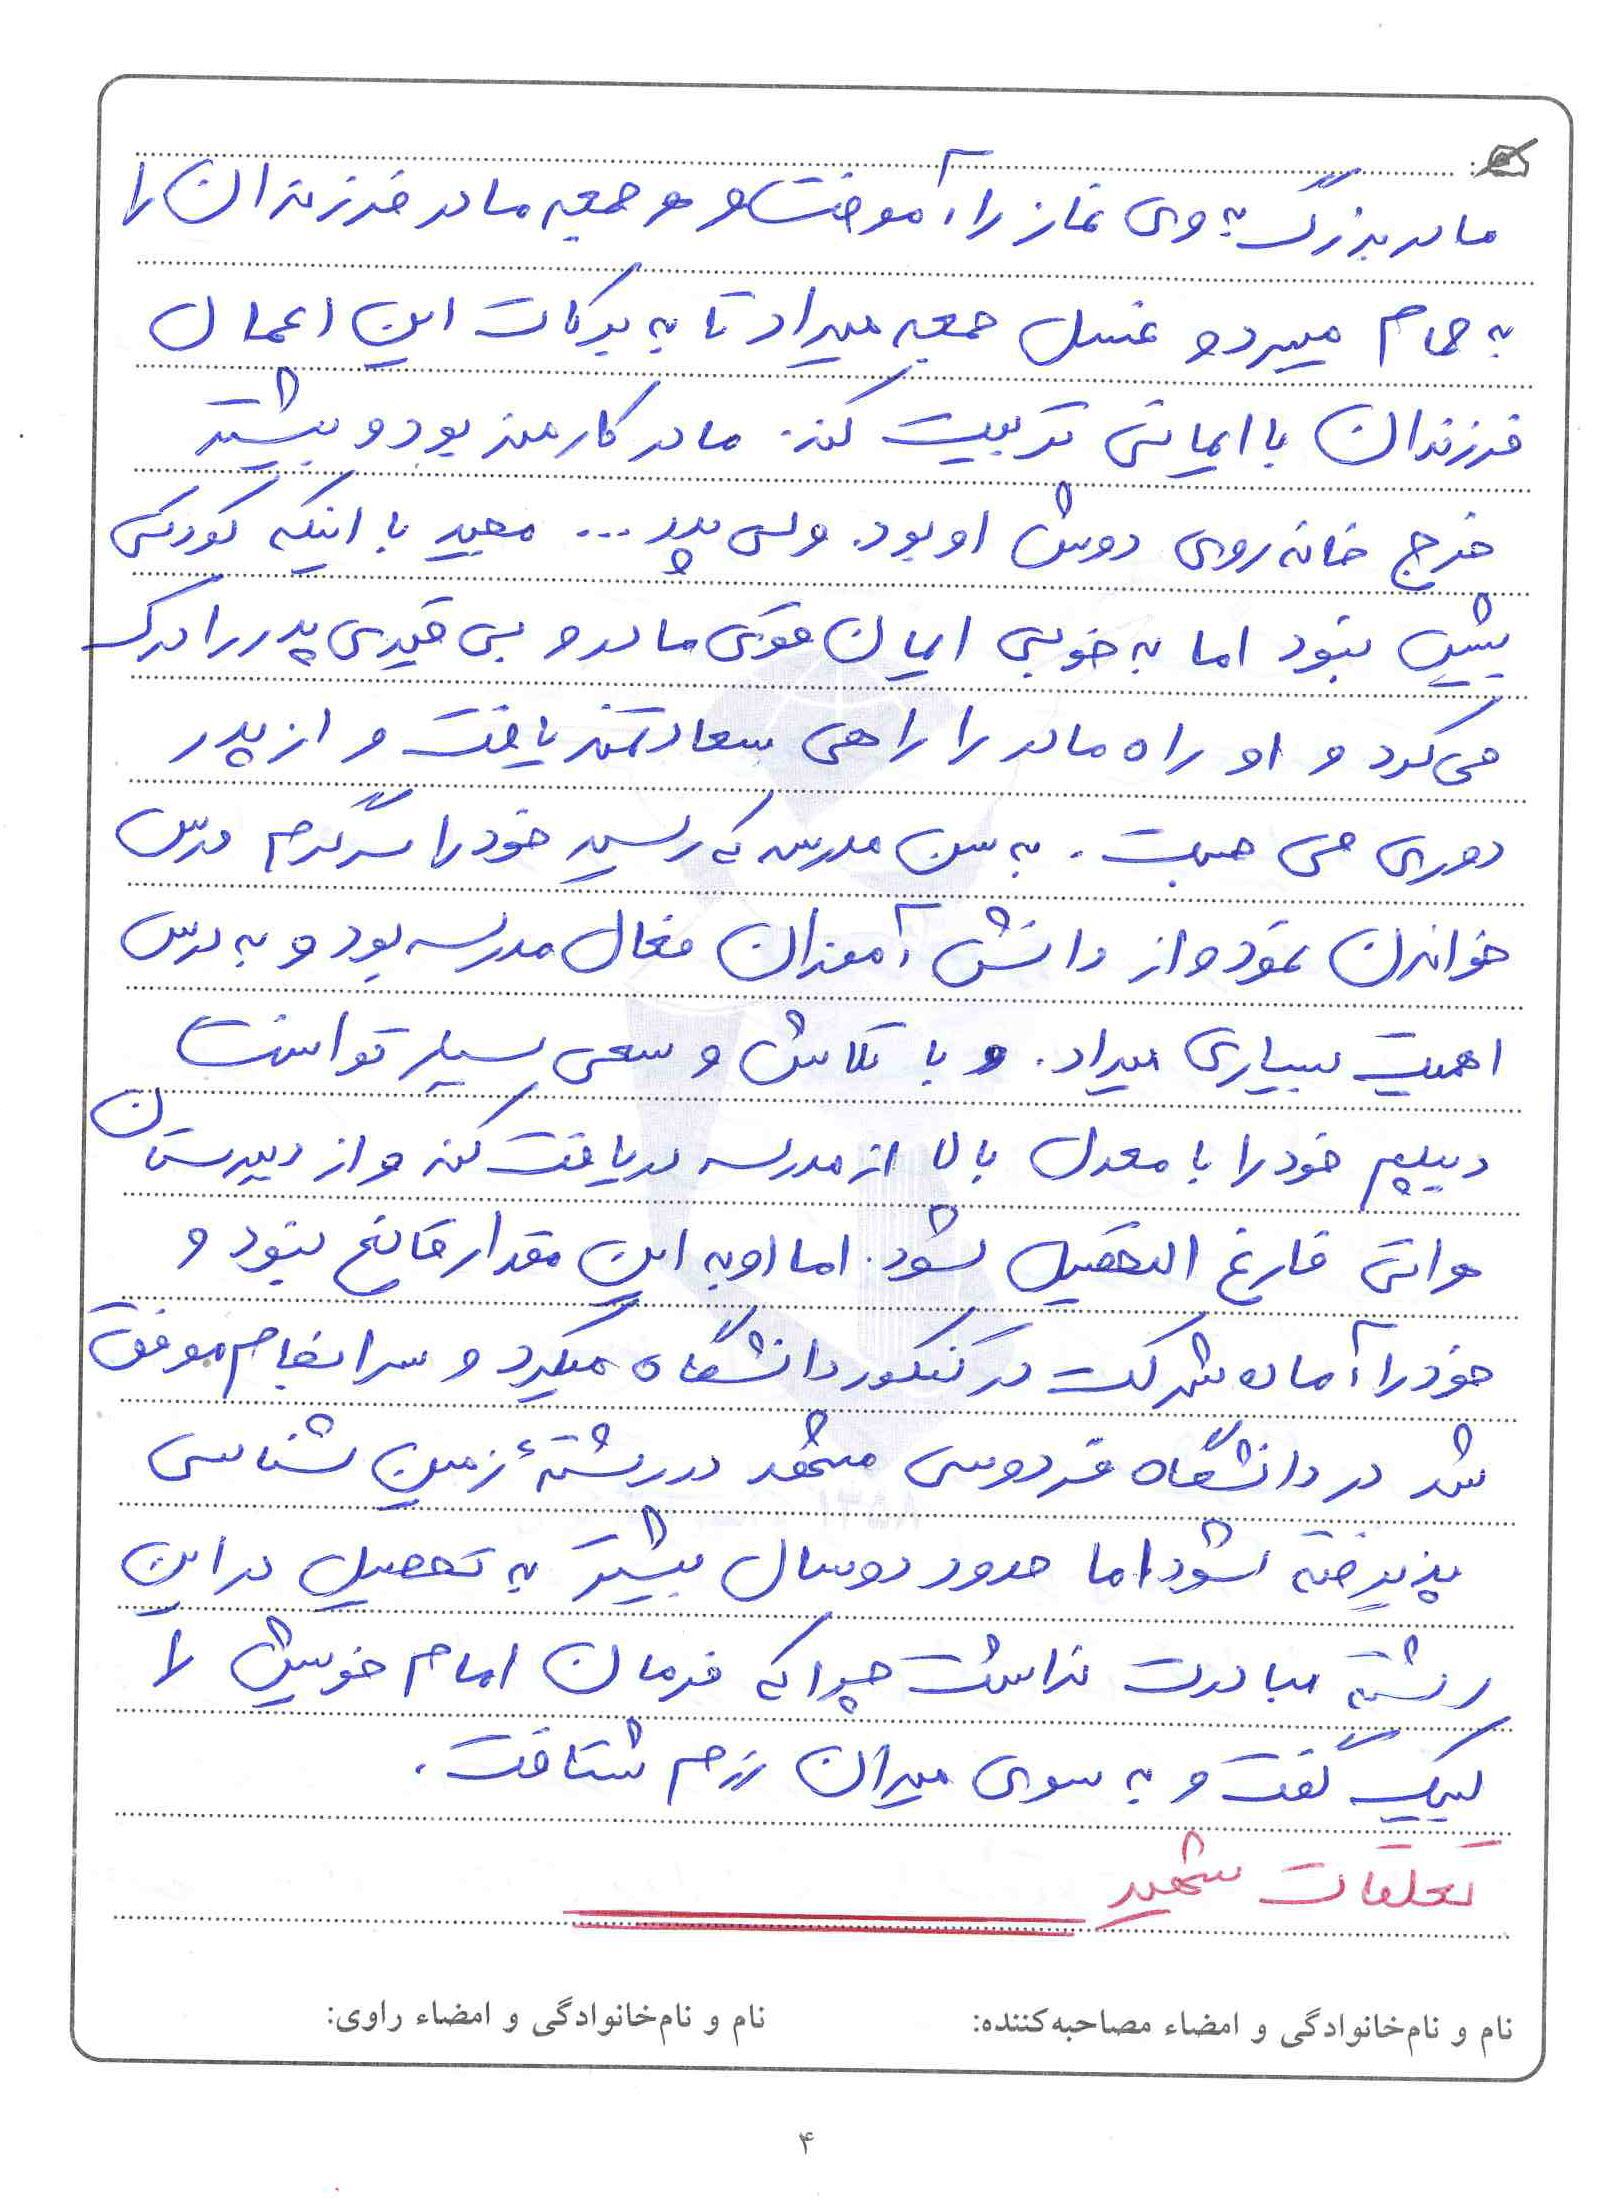 مادربزرگ به وی نماز را آموخت و هر جمعه مادر فرزندان را
به حمام میبرد و غسل جمعه میداد تا به برکات این اعمال
فرزندان با ایمانی تربیت کند. مادر کارمند بود و بیشتر
خرج خانه روی دوش او بود. ولی پدر ... مجید با اینکه کودکی
بیش نبود اما به خوبی ایمان قوی مادر و بی قیدی پدر را درک
می کرد و او راه مادر را راهی سعادتمند یافت و از پدر
دوری می جست. به سن مدرسه که رسید خود را سرگرم درس
خواندن نمود و از دانش آموزان فعال مدرسه بود و به درس
اهمیت بسیاری میداد. و با تلاش و سعی بسیار توانست
دیپلم خود را با معدل بالا از مدرسه دریافت کند و از دبیرستان
فارغ التحصیل شود. اما او به این مقدار قانع نبود و
خود را آماده شرکت در کنکور دانشگاه میکرد و سرانجام موفق
شد در دانشگاه فردوسی مشهد در رشتهٔ زمین شناسی
پذیرفته شود اما حدود دو سال بیشتر به تحصیل در این
رشته مبادرت نداشت چرا که فرمان امام خویش را
لبیک گفت و به سوی میدان رزم شتافت.
تعلقات شهید
نام و نام‌خانوادگی و امضاء مصاحبه‌کننده: نام و نام‌خانوادگی و امضاء راوی:
۴